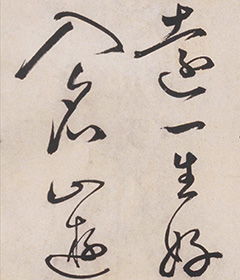 遠一生好
入名山遊